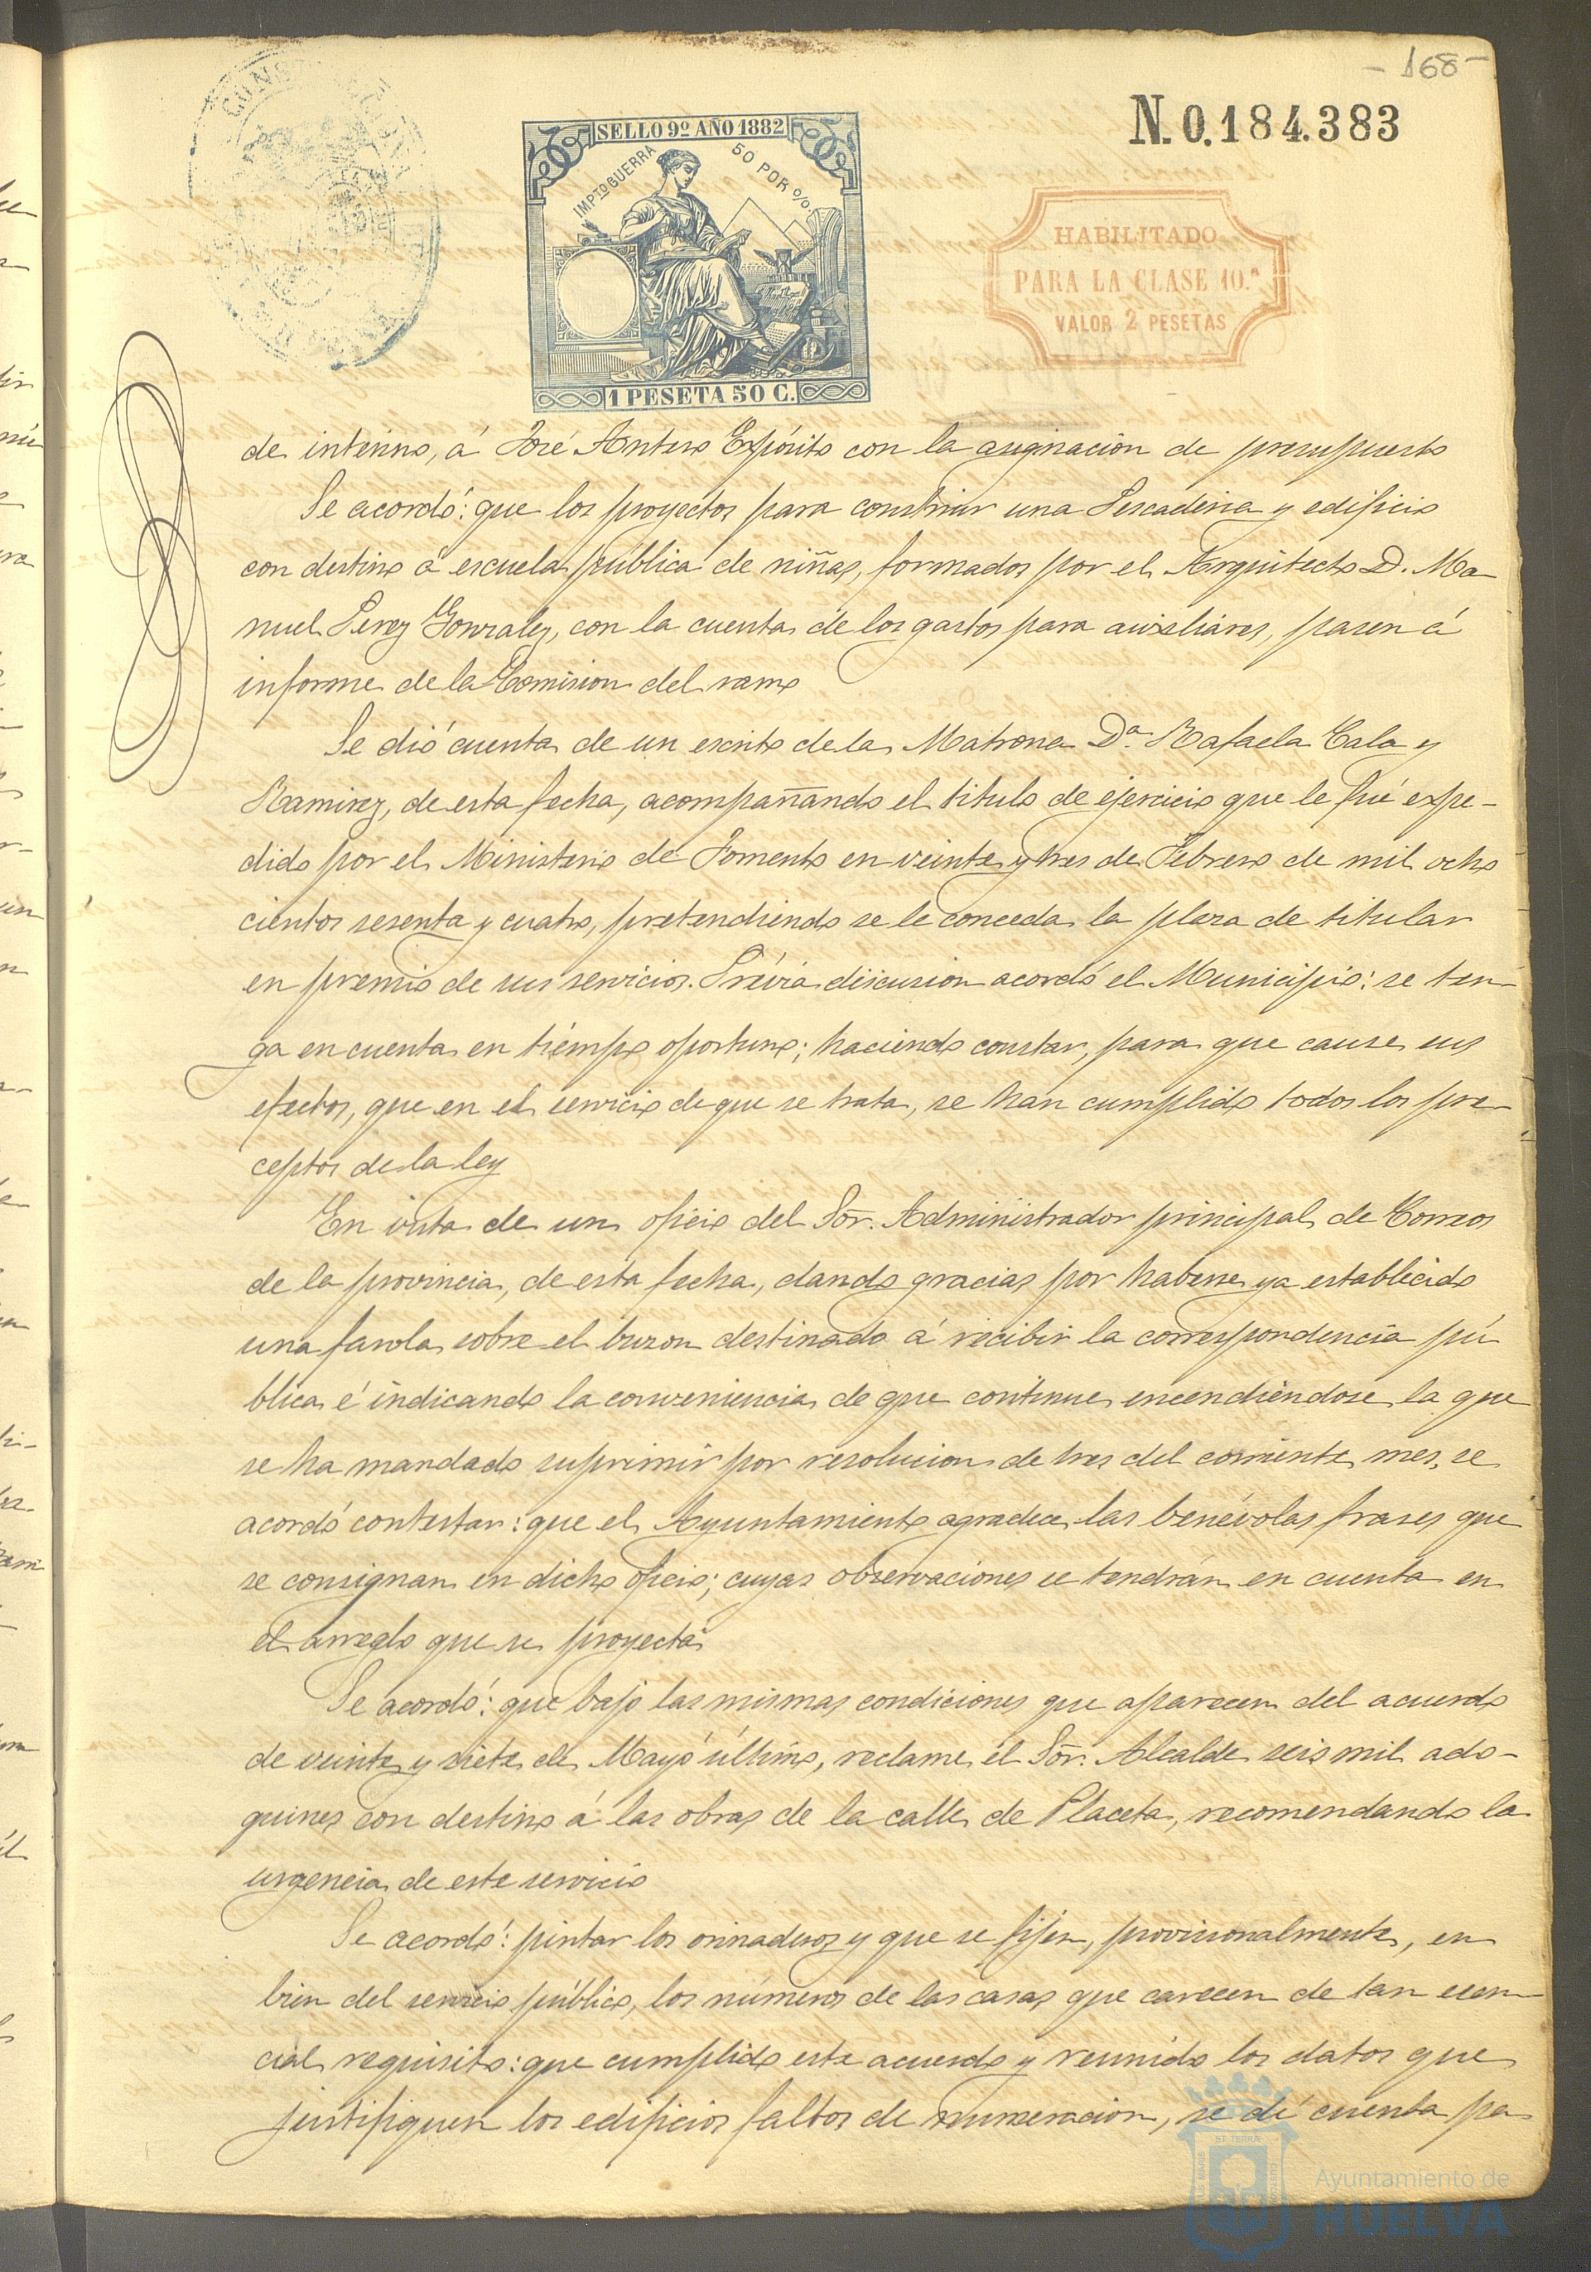 - 168 -
N. 0.184.383
SELLO 9º AÑO 1882
IMPTO GUERRA 50 POR %
HABILITADO
PARA LA CLASE 10.ª
VALOR 2 PESETAS
1 PESETA 50 C.
de interino, á José Antero Expósito con la asignacion de presupuesto
Se acordó: que los proyectos para construir una Pescaderia y edificio
con destino á escuela pública de niñas, formados por el Arquitecto D. Ma-
nuel Perez Gonzalez, con la cuenta de los gastos para auxiliares, pasen á
informe de la Comision del ramo
Se dió cuenta de un escrito de la Matrona Dª. Rafaela Cala y
Ramirez, de esta fecha, acompañando el titulo de ejercicio que le fué expe-
dido por el Ministerio de Fomento en veinte y tres de Febrero de mil ocho
cientos sesenta y cuatro, pretendiendo se le conceda la plaza de titular
en premio de sus servicios. Prévia discusion acordó el Municipio: se ten-
ga en cuenta en tiempo oportuno; haciendo constar, para que cause sus
efectos, que en el servicio de que se trata, se han cumplido todos los pre-
ceptos de la ley
En vista de un oficio del Sor. Administrador principal de Correos
de la provincia, de esta fecha, dando gracias por haberse ya establecido
una farola sobre el buzon destinado á recibir la correspondencia pú
blica é indicando la conveniencia de que continue encendiéndose la que
se ha mandado suprimir por resolucion de tres del corriente mes, se
acordó contestar: que el Ayuntamiento agradece las benévolas frases que
se consignan en dicho oficio; cuyas observaciones se tendrán en cuenta en
el arreglo que se proyecta
Se acordó: que bajo las mismas condiciones que aparecen del acuerdo
de veinte y siete de Mayo último, reclame el Sor. Alcalde seis mil ado-
quines con destino á las obras de la calle de Placeta, recomendando la
urgencia de este servicio
Se acordó: pintar los orinaderos y que se fijen, provisionalmente, en
bien del servicio público, los números de las casas que carecen de tan esen-
cial requisito: que cumplido este acuerdo y reunido los datos que
justifiquen los edificios faltos de numeracion, se dé cuenta pa
Ayuntamiento de
HUELVA